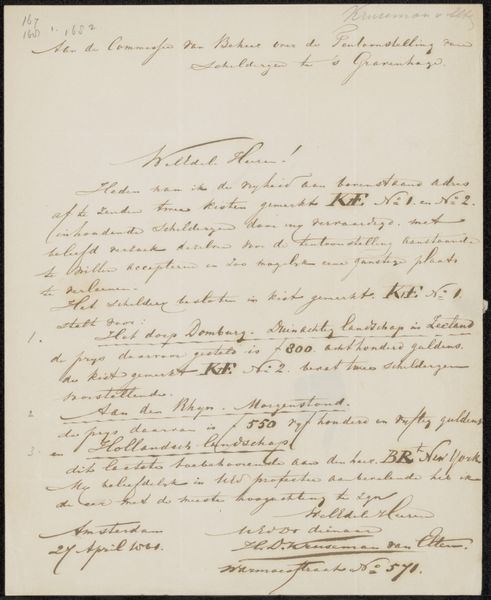 167
168 1. 1652
Kruseman v. Elten
Aan de Commissie van Beheer over de Tentoonstelling van
Schilderyen te 's Gravenhage.
WelEdele Heeren!
Heden nam ik de vryheid aan bovenstaand adres
af te zenden twee kisten gemerkt KvE No 1 en No 2.
inhoudende schilderyen door my vervaardigd. met
beleefd verzoek dezelve voor de tentoonstelling aanstaande
te willen accepteren en zoo mogelyk eene gunstige plaats
te verleenen.
Het schildery besloten in kist gemerkt KvE No 1
stelt voor:
1. Het dorp Domburg. Duinachtig landschap in Zeeland
de prys daarvan gesteld is ƒ 800. acht honderd guldens.
de kist gemerkt KvE No 2. bevat twee schilderyen
voorstellende.
2 Aan den Rhyn. Morgenstond.
de prys daarvan is ƒ 550 vyf honderd en vyftig guldens
3. en Hollandsch landschap
dit laatste toebehoorende aan den heer BRt New York
My beleefdelyk in UEd protectie aanbevelende heb ik
de eer met de meeste hoogachting te zyn
WelEdele Heeren
Amsterdam
UEd Dv dienaar
27 April 1861.
H. D. Kruseman van Elten.
Warmoesstraat No 571.